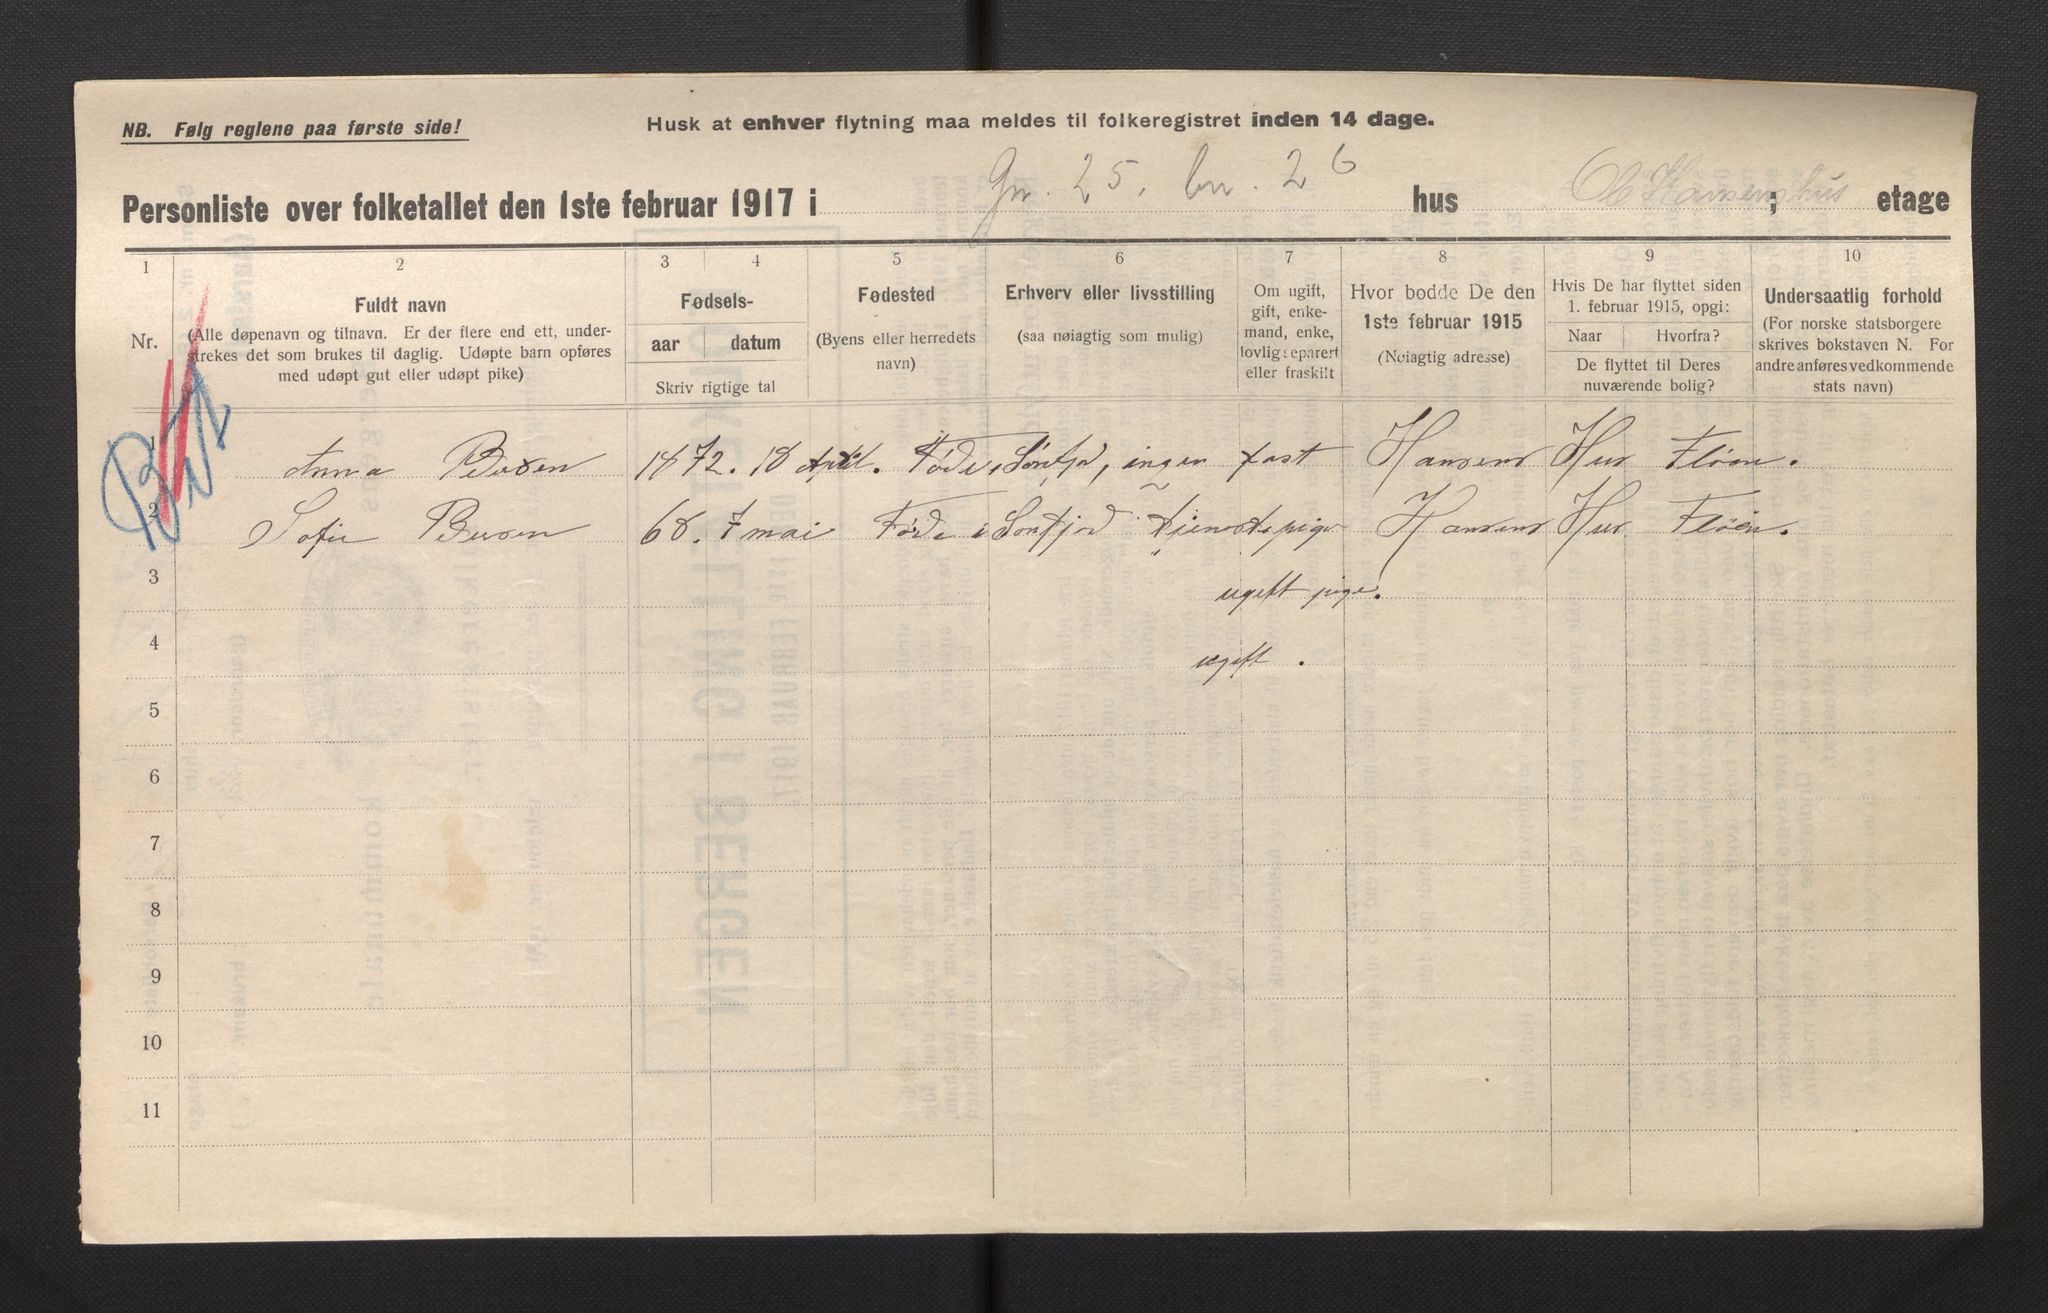 NB. Følg reglene paa første side!
Husk at enhver flytning maa meldes til folkeregistret inden 14 dage.
Personliste over folketallet den 1ste februar 1917 i Gn. 25, bn. 26 hus Hansens hus ; etage
1 2 3 4 5 6 7 8 9 10
Nr.
Fuldt navn
(Alle døpenavn og tilnavn. Er der flere end ett, under-
strekes det som brukes til daglig. Udøpte barn opføres
med udøpt gut eller udøpt pike)
Fødsels-
aar datum
Skriv rigtige tal
Fødested
(Byens eller herredets
navn)
Erhverv eller livsstilling
(saa nøiagtig som mulig)
Om ugift,
gift, enke-
mand, enke,
lovlig separert
eller fraskilt
Hvor bodde De den
1ste februar 1915
(Nøiagtig adresse)
Hvis De har flyttet siden
1. februar 1915, opgi:
Naar Hvorfra?
De flyttet til Deres
nuværende bolig?
Undersaatlig forhold
(For norske statsborgere
skrives bokstaven N. For
andre anføres vedkommende
stats navn)
1 Anna 1872. 18 April. Førde, Søndfjord, ingen fast Hansens Hus Fløen.
2 Sofie 68. 7 mai Førde i Søndfjord tjenestepige Hansens Hus Fløen.
3 ugift pige.
4 ugift.
5
6
7
8
9
10
11